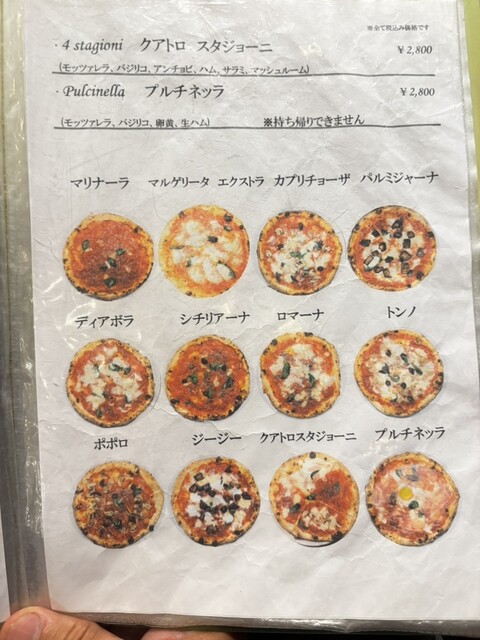 ※全て税込み価格です
・4 stagioni クアトロ スタジョーニ ￥2,800
(モッツァレラ、バジリコ、アンチョビ、ハム、サラミ、マッシュルーム)
・Pulcinella プルチネッラ ￥2,800
(モッツァレラ、バジリコ、卵黄、生ハム) ※持ち帰りできません
マリナーラ マルゲリータ エクストラ カプリチョーザ パルミジャーナ
ディアボラ シチリアーナ ロマーナ トンノ
ポポロ ジージー クアトロスタジョーニ プルチネッラ